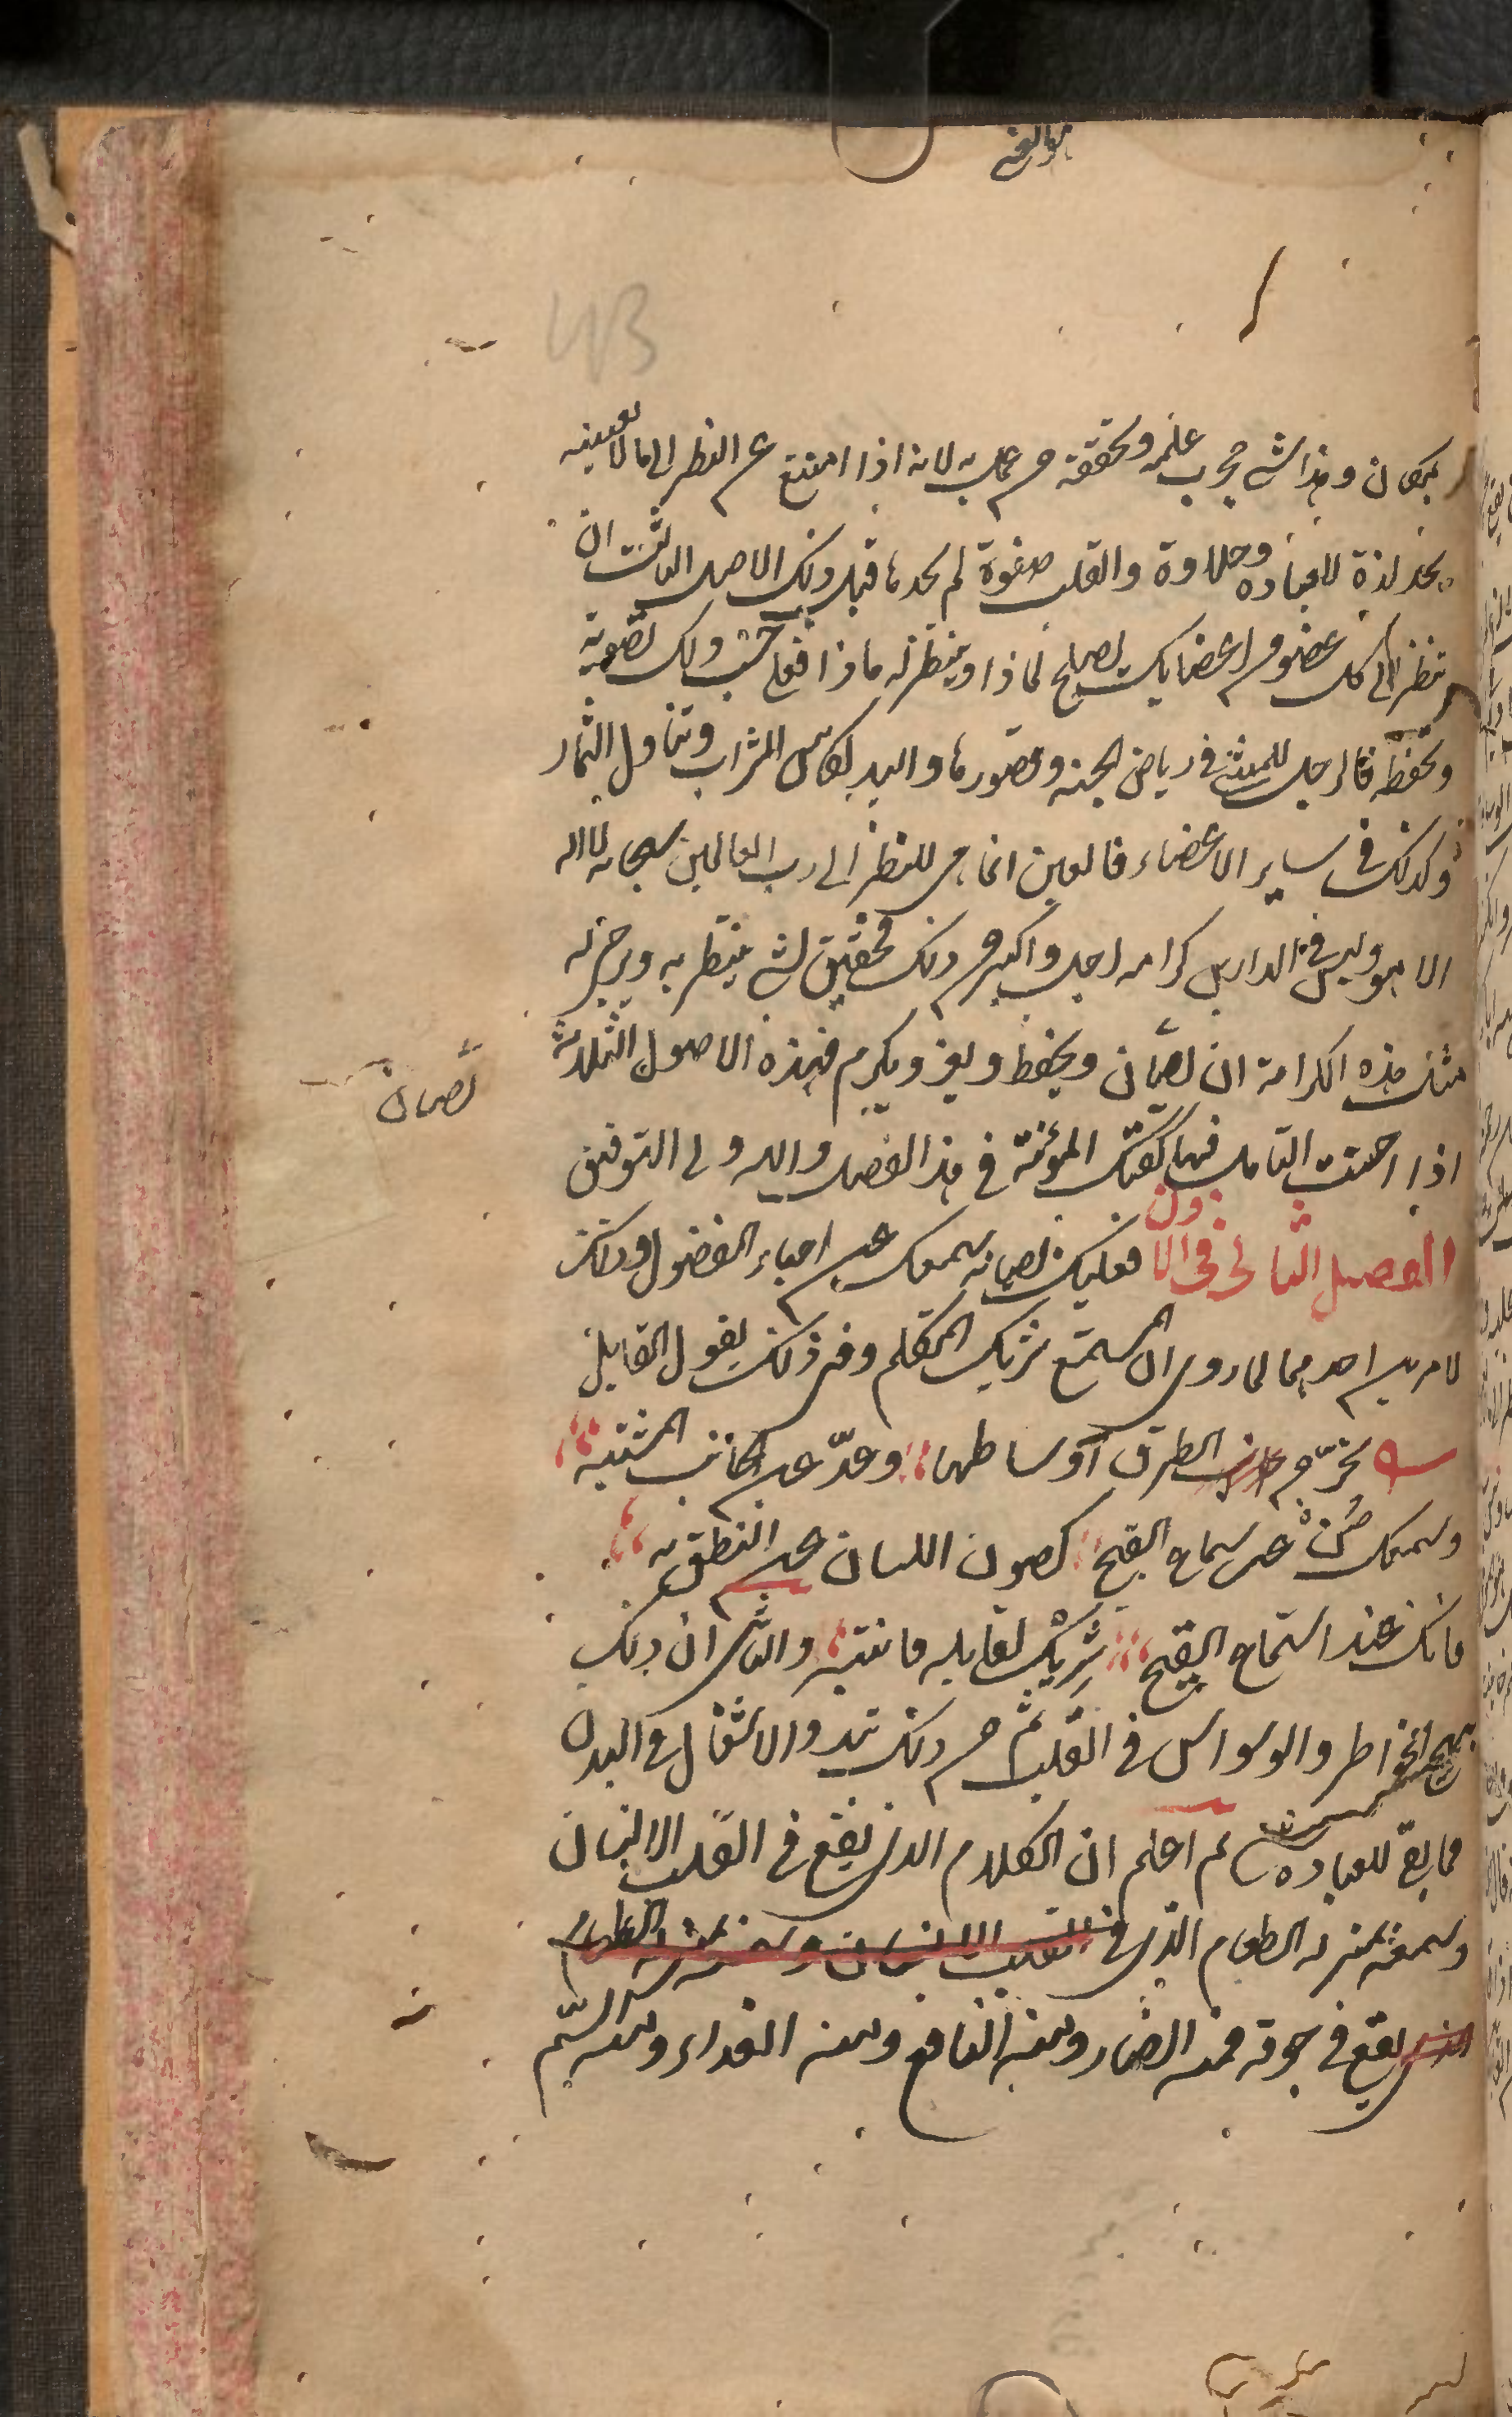 43
بمكان وهذا شيء مجرب علمه وتحققه من عمل به لانه اذا امتنع عن النظر الى ما لا يعنيه
يجد لذة للعباده وحلاوة والقلب صفوة لم يجدها قبل ذلك الاصل الثالث ان
تنظر الى كل عضو من اعضايك يصلح لماذا وينظر له ماذا فعلى حسب ذلك تصونه
وتحفظه فالرجل للمشي في رياض الجنه وقصورها واليد لكاس الشراب وتناول الثمار
وكذلك في ساير الاعضاء فالعين انما هي للنظر الى رب العالمين سبحانه لا اله
الا هو وليس في الدارين كرامه اجل واكبر من ذلك فحقيق لشيء ينتظر به ويرجى له
مثل هذه الكرامة ان يصان ويحفظ ويعز ويكرم فهذه الاصول الثلاثة
تصان
اذا احسنت التامل فيها كفتك المؤنة في هذا الفصل والله ولى التوفيق
الفصل الثانى فى الاذن فعليك بصيانة سمعك عن احياء الفضول وذلك
لامرين احدهما لما روى ان المستمع شريك المتكلم وفي ذلك يقول القايل
تحر من الطرق اوساطها وعد عن الجانب المشتبه
وسمعك صن عن سماع القبيح كصون اللسان عن النطق به
فانك عند استماع القبيح شريك لقايله فانتبه والثانى ان ذلك
يهيج الخواطر والوسواس في القلب ثم من ذلك تبدو الاشغال في البدن
فما بقى للعباده ثم اعلم ان الكلام الذى يقع في القلب الانسان
وسمعه بمنزلة الطعام الذى في القلب الانسان وسمعه بمنزلة الطعام
الذى يقع في جوفه فمنه الضار ومنه النافع ومنه الغداء ومنه السم